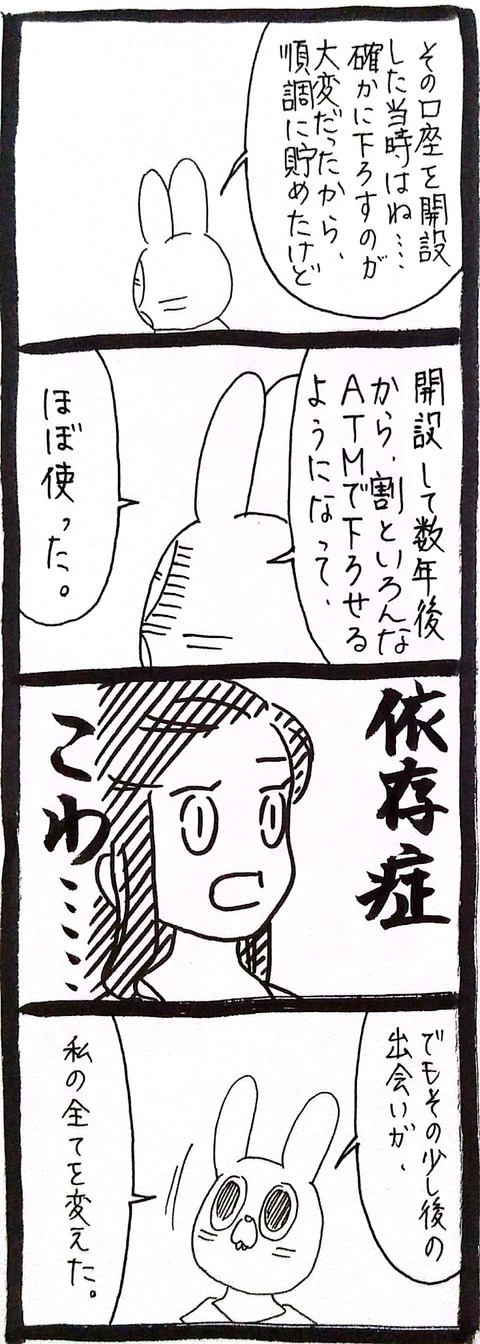 その口座を開設
した当時はね……
確かに下ろすのが
大変だったから、
順調に貯めたけど
開設して数年後
から、割といろんな
ATMで下ろせる
ようになって、
ほぼ使った。
依存症
こわ……
でもその少し後の
出会いが、
私の全てを変えた。